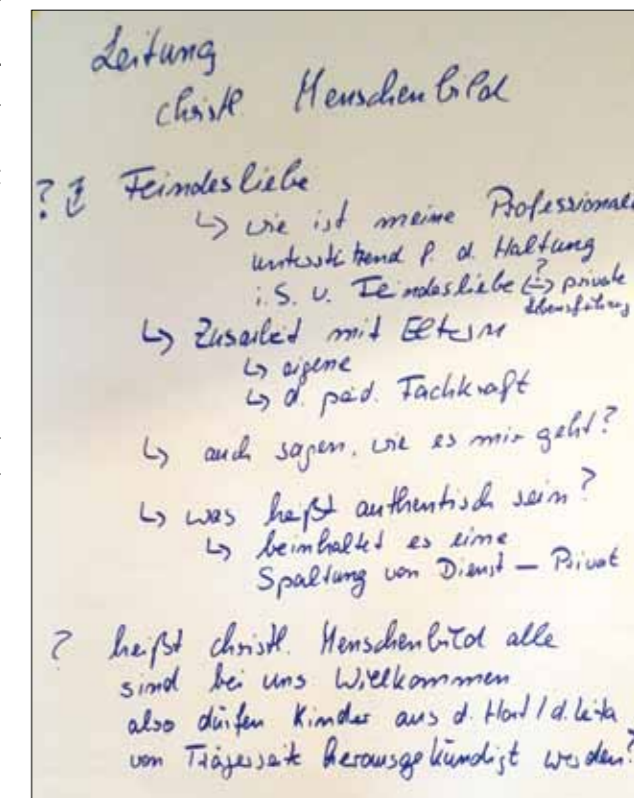 Leitung
christl. Menschenbild
? Feindesliebe
↳ wie ist meine Professionali
unterstützend f. d. Haltung
i. S. v. Feindesliebe ? ↔ private
Lebensführung
↳ Zusarbeit mit Eltern
↳ eigene
↳ d. päd. Fachkraft
↳ auch sagen, wie es mir geht?
↳ was heißt authentisch sein?
↳ beinhaltet es eine
Spaltung von Dienst – Privat
? heißt christl. Menschenbild alle
sind bei uns Willkommen
also dürfen Kinder aus d. Hort / d. Kita
von Trägerseite herausgekündigt werden?